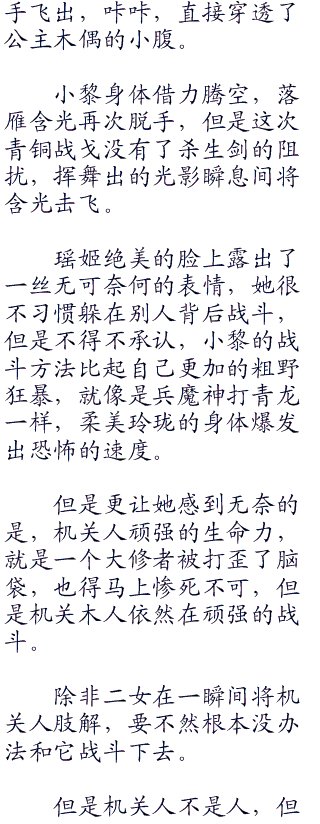 手飞出，咔咔，直接穿透了
公主木偶的小腹。
小黎身体借力腾空，落
雁含光再次脱手，但是这次
青铜战戈没有了杀生剑的阻
扰，挥舞出的光影瞬息间将
含光击飞。
瑶姬绝美的脸上露出了
一丝无可奈何的表情，她很
不习惯躲在别人背后战斗，
但是不得不承认，小黎的战
斗方法比起自己更加的粗野
狂暴，就像是兵魔神打青龙
一样，柔美玲珑的身体爆发
出恐怖的速度。
但是更让她感到无奈的
是，机关人顽强的生命力，
就是一个大修者被打歪了脑
袋，也得马上惨死不可，但
是机关木人依然在顽强的战
斗。
除非二女在一瞬间将机
关人肢解，要不然根本没办
法和它战斗下去。
但是机关人不是人，但